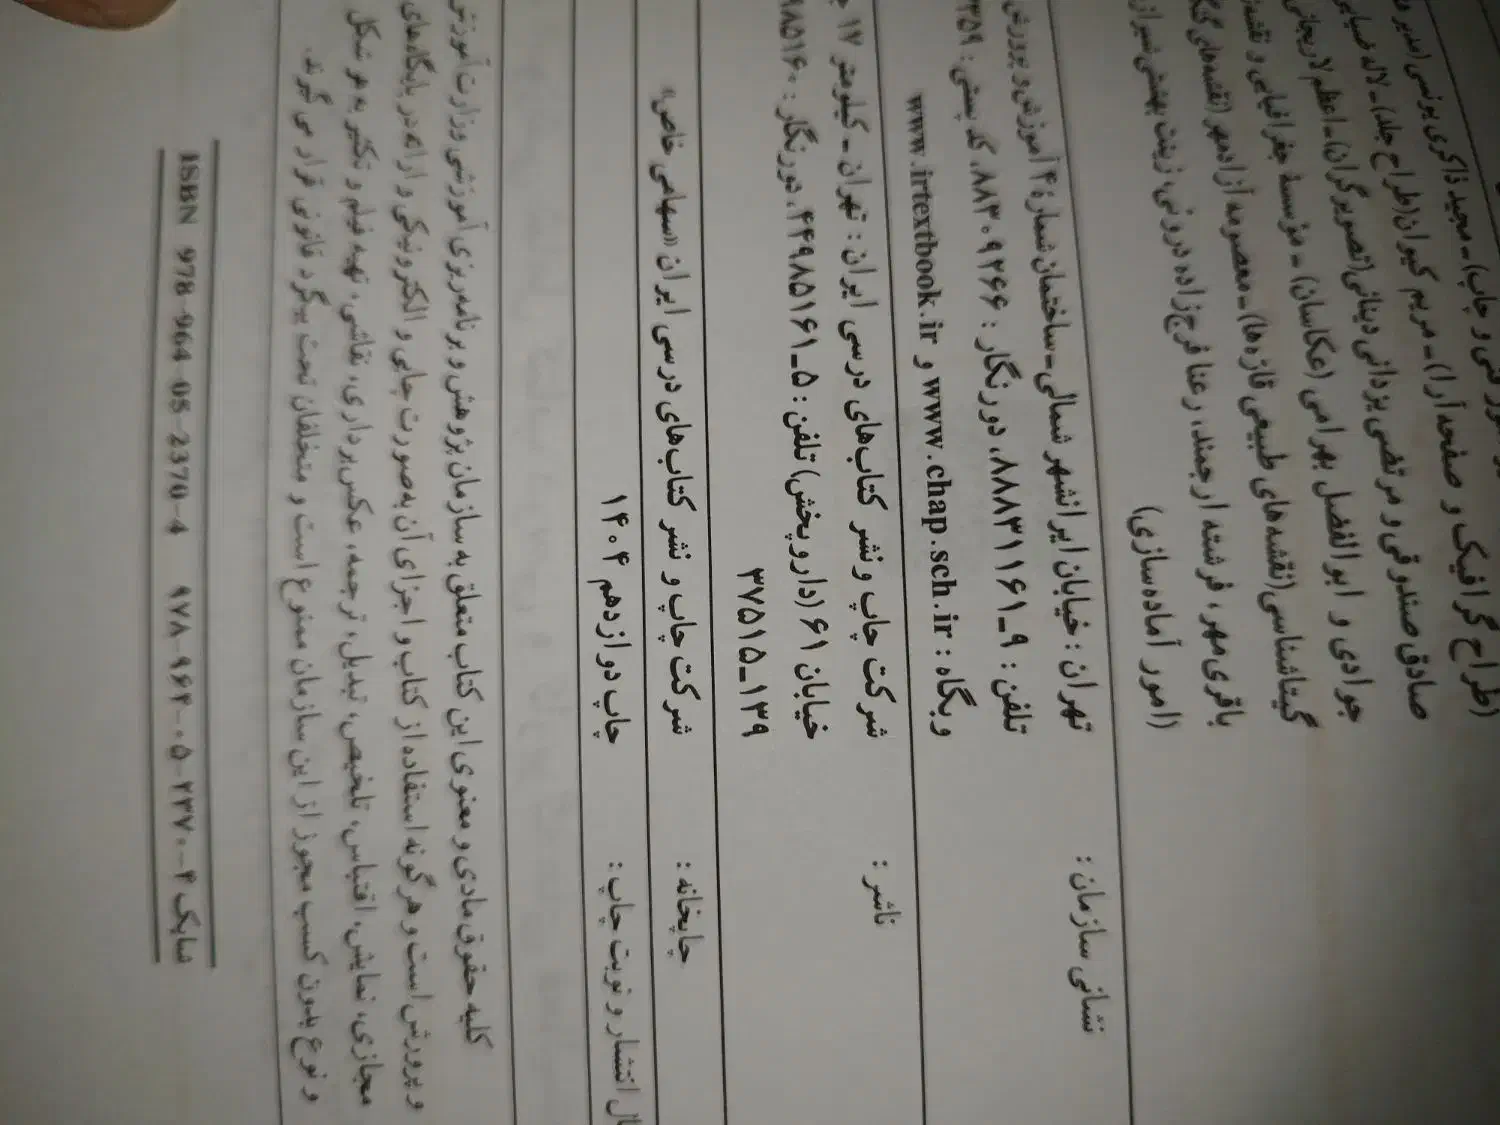 فنی و چاپ) - مجید ذاکری یونسی (مدیر
(طراح گرافیک و صفحه‌آرا) - مریم کیوان (طراح جلد) - لاله
صادق صندوقی و مرتضی یزدانی دینانی (تصویرگران) - اعظم لاریجانی
جوادی و ابوالفضل بهرامی (عکاسان) - مؤسسهٔ جغرافیایی و
گیتاشناسی (نقشه‌های طبیعی قاره‌ها) - معصومه آزادمهر (نقشه‌های
باقری مهر، فرشته ارجمند، رعنا فرج‌زاده دروئی، زینت بهشتی شیرازی
(امور آماده‌سازی)
نشانی سازمان : تهران : خیابان ایرانشهر شمالی - ساختمان شمارهٔ ۴ آموزش و پرورش
تلفن : ۹-۸۸۸۳۱۱۶۱، دورنگار : ۸۸۳۰۹۲۶۶، کد پستی : ۳۵۹
وبگاه : www.chap.sch.ir و www.irtextbook.ir
ناشر : شرکت چاپ و نشر کتاب‌های درسی ایران : تهران - کیلومتر ۱۷
خیابان ۶۱ (داروپخش) تلفن : ۵-۴۴۹۸۵۱۶۱، دورنگار : ۹۸۵۱۶۰
۳۷۵۱۵-۱۳۹
چاپخانه : شرکت چاپ و نشر کتاب‌های درسی ایران «سهامی خاص»
انتشار و نوبت چاپ : چاپ دوازدهم ۱۴۰۴
کلیه حقوق مادی و معنوی این کتاب متعلق به سازمان پژوهش و برنامه‌ریزی آموزشی وزارت آموزش
و پرورش است و هرگونه استفاده از کتاب و اجزای آن به‌صورت چاپی و الکترونیکی و ارائه در پایگاه‌های
مجازی، نمایش، اقتباس، تلخیص، تبدیل، ترجمه، عکس‌برداری، نقاشی، تهیه فیلم و تکثیر به هر شکل
و نوع بدون کسب مجوز از این سازمان ممنوع است و متخلفان تحت پیگرد قانونی قرار می‌گیرند.
شابک ۴-۲۳۷۰-۰۵-۹۶۴-۹۷۸ ISBN 978-964-05-2370-4